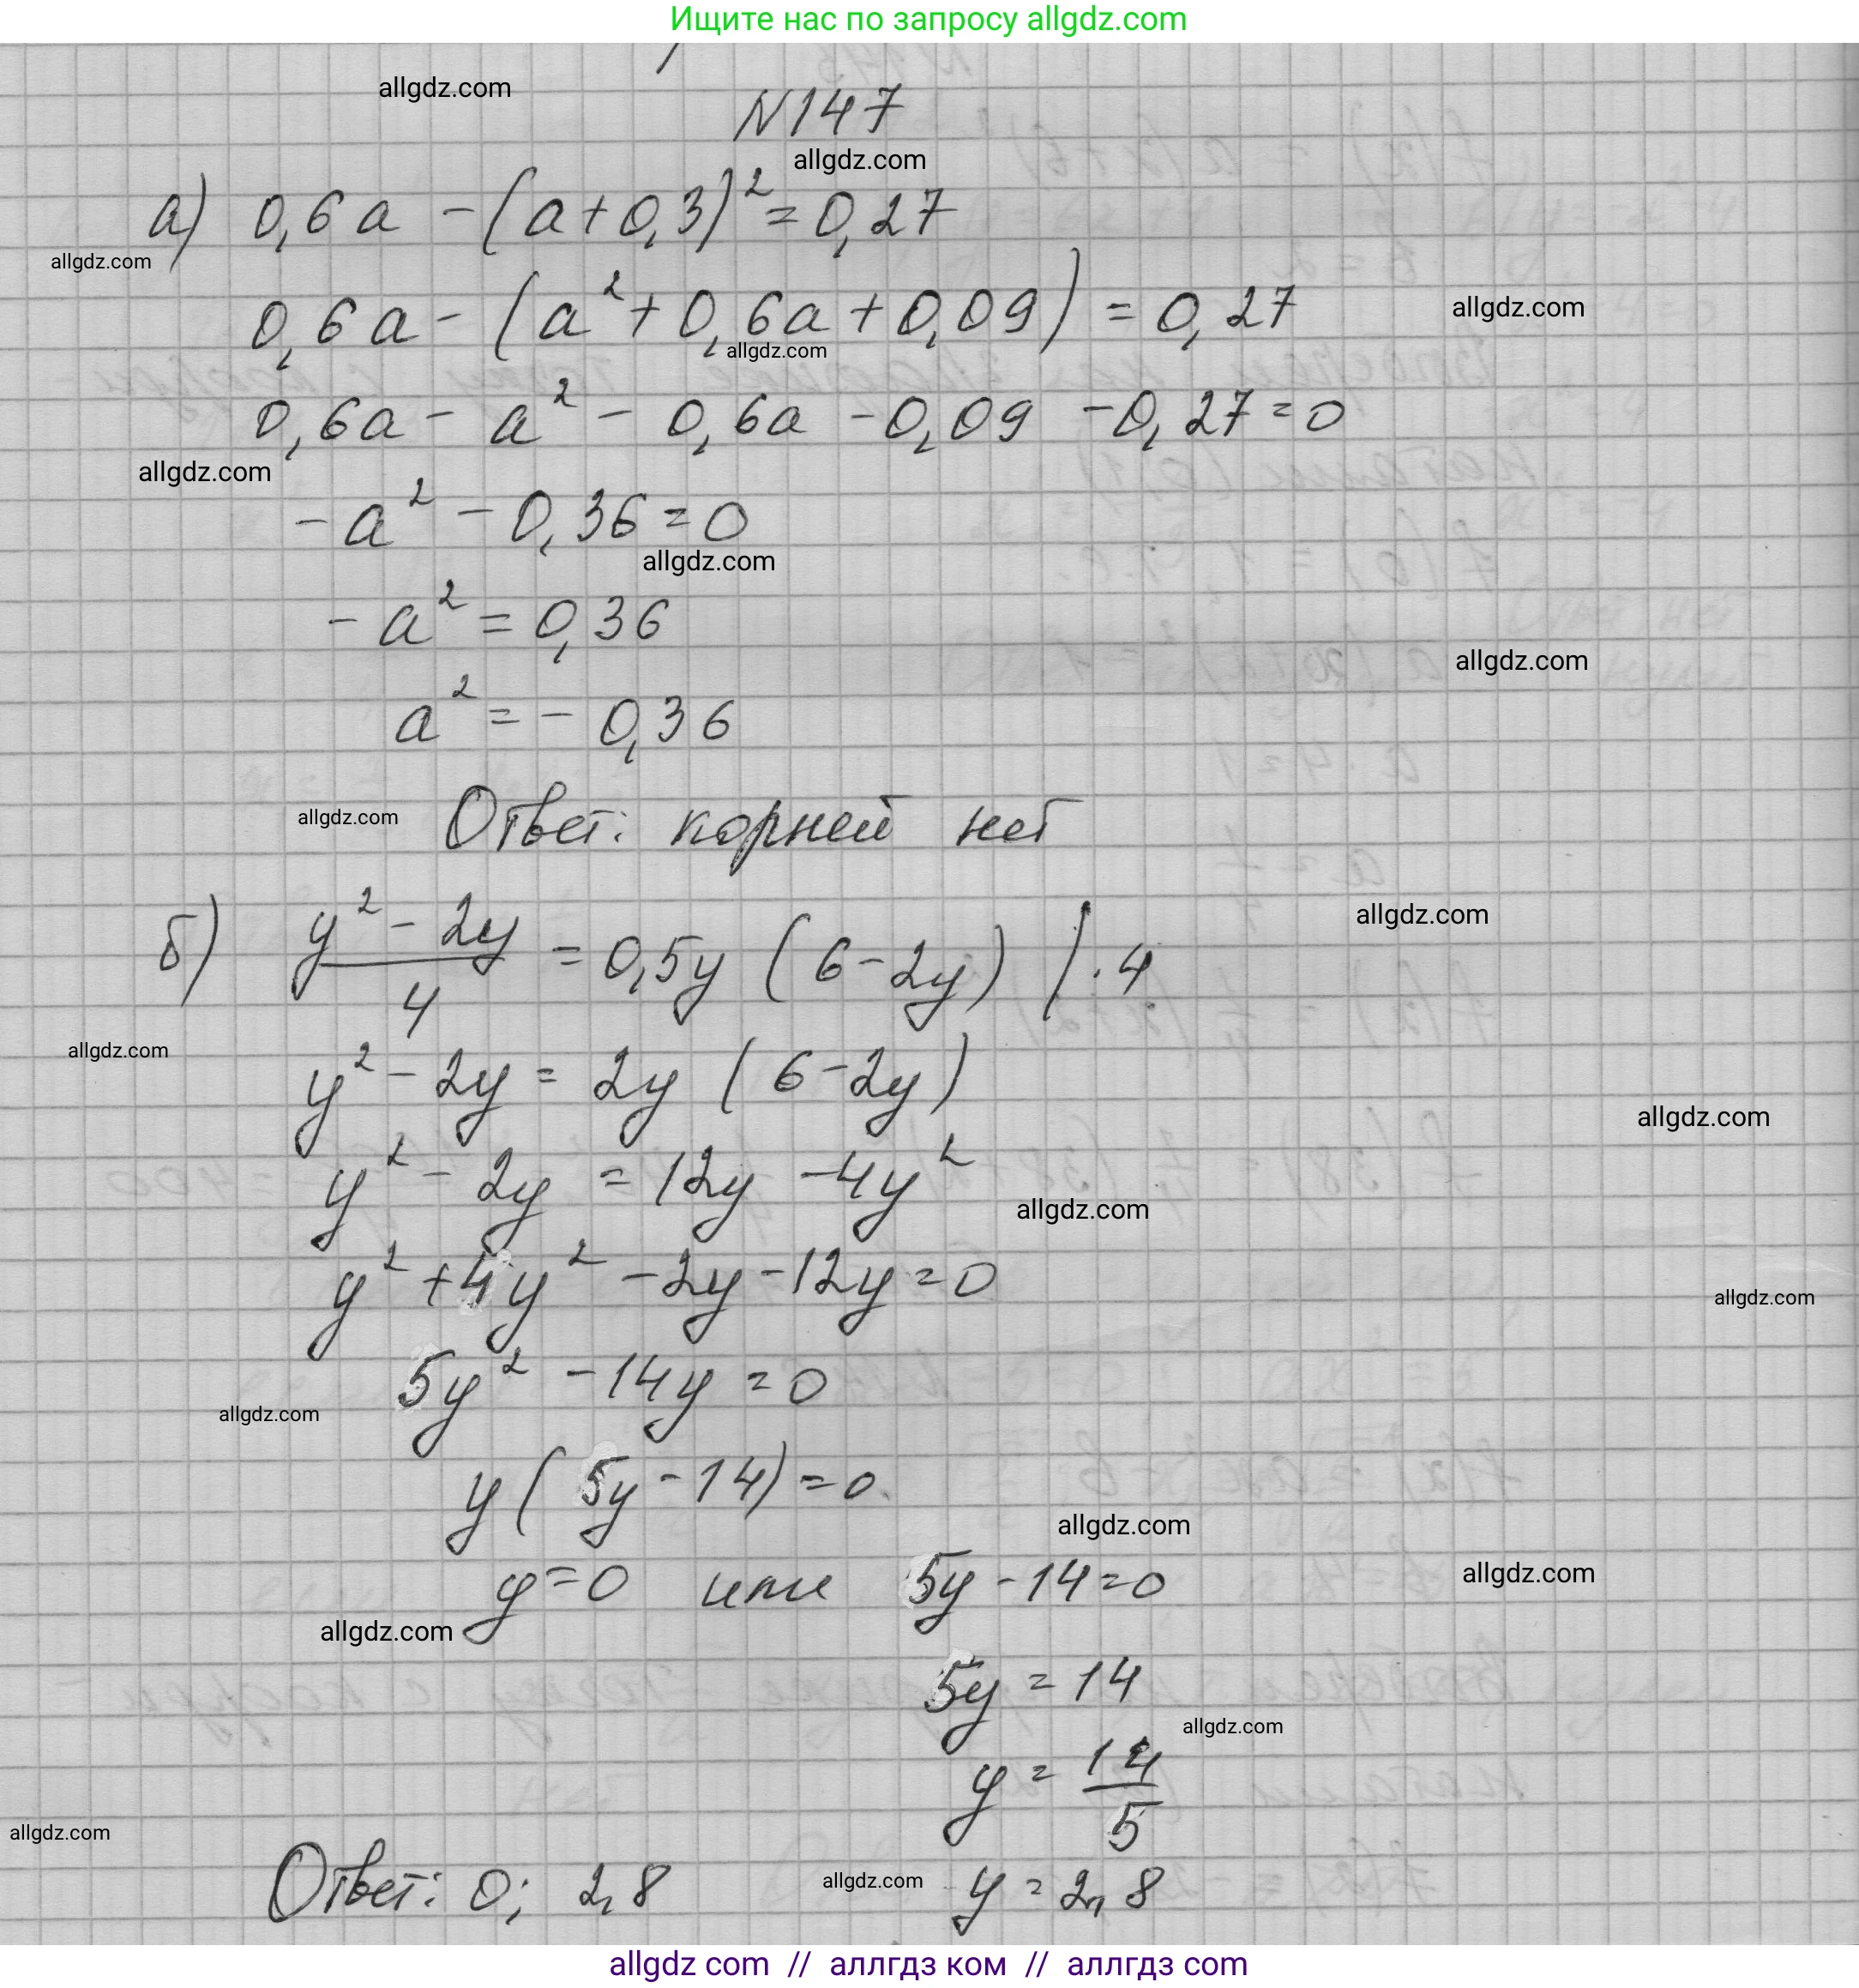 Ищите нас по запросу allgdz.com
allgdz.com
N147
allgdz.com
а) 0,6a - (a+0,3)² = 0,27
allgdz.com
0,6a - (a² + 0,6a + 0,09) = 0,27
allgdz.com
allgdz.com
0,6a - a² - 0,6a - 0,09 - 0,27 = 0
allgdz.com
-a² - 0,36 = 0
allgdz.com
-a² = 0,36
allgdz.com
a² = - 0,36
allgdz.com
Ответ: корней нет
allgdz.com
б) (y² - 2y)/4 = 0,5y (6 - 2y) | · 4
allgdz.com
y² - 2y = 2y (6 - 2y)
allgdz.com
y² - 2y = 12y - 4y²
allgdz.com
y² + 4y² - 2y - 12y = 0
allgdz.com
5y² - 14y = 0
allgdz.com
y (5y - 14) = 0
allgdz.com
y = 0 или 5y - 14 = 0
allgdz.com
allgdz.com
5y = 14
allgdz.com
y = 14/5
allgdz.com
Ответ: 0; 2,8
allgdz.com
y = 2,8
allgdz com // аллгдз ком // аллгдз com